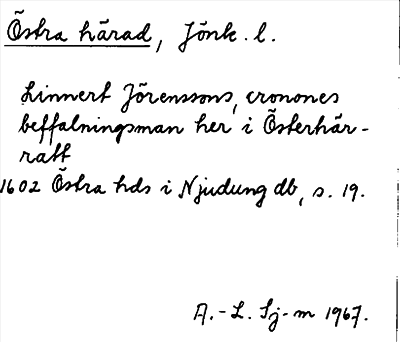 Östra härad, Jönk. l.
Linnert Jörenssons, cronones
beffalningsman her i Österhär-
ratt
1602 Östra hds i Njudung db, s. 19.
A.-L. Sj-m 1967.